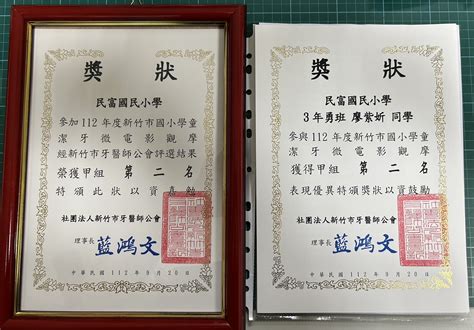 獎狀
民富國民小學
參加112年度新竹市國小學童
潔牙微電影觀摩
經新竹市牙醫師公會評選結果
榮獲甲組 第二名
特頒此狀以資嘉勉
社團法人新竹市牙醫師公會
理事長 藍鴻文
中華民國112年9月20日
獎狀
民富國民小學
3年勇班 廖紫妡 同學
參與112年度新竹市國小學童
潔牙微電影觀摩
獲得甲組 第二名
表現優異特頒獎狀以資鼓勵
社團法人新竹市牙醫師公會
理事長 藍鴻文
中華民國112年9月20日